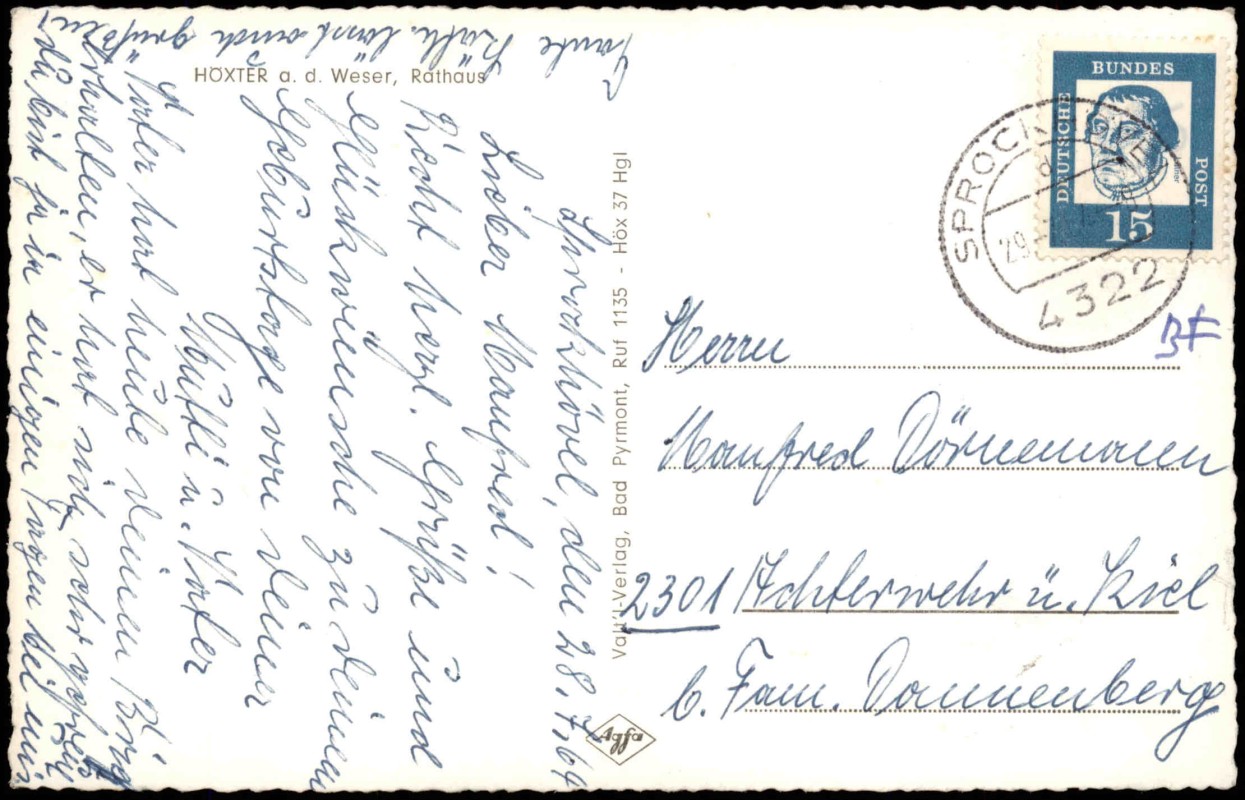 HÖXTER a. d. Weser, Rathaus
Sprockhövel, den 28.7.64
Lieber Manfred!
Recht herzl. Grüße und
Glückwünsche zu deinem
Geburtstage von deiner
Mutti u. Vater
Vater hat heute deinen Brief
erhalten, er hat sich sehr gefreut
du bist ja in einigen Tagen bei uns
Tante Käthe lässt auch grüßen
Valit'l-Verlag, Bad Pyrmont, Ruf 1135 - Höx 37 Hgl
Agfa
DEUTSCHE
BUNDES
POST
15
4322
29.
Herrn
Manfred Dörnemann
2301 Achterwehr ü. Kiel
b. Fam. Dannenberg